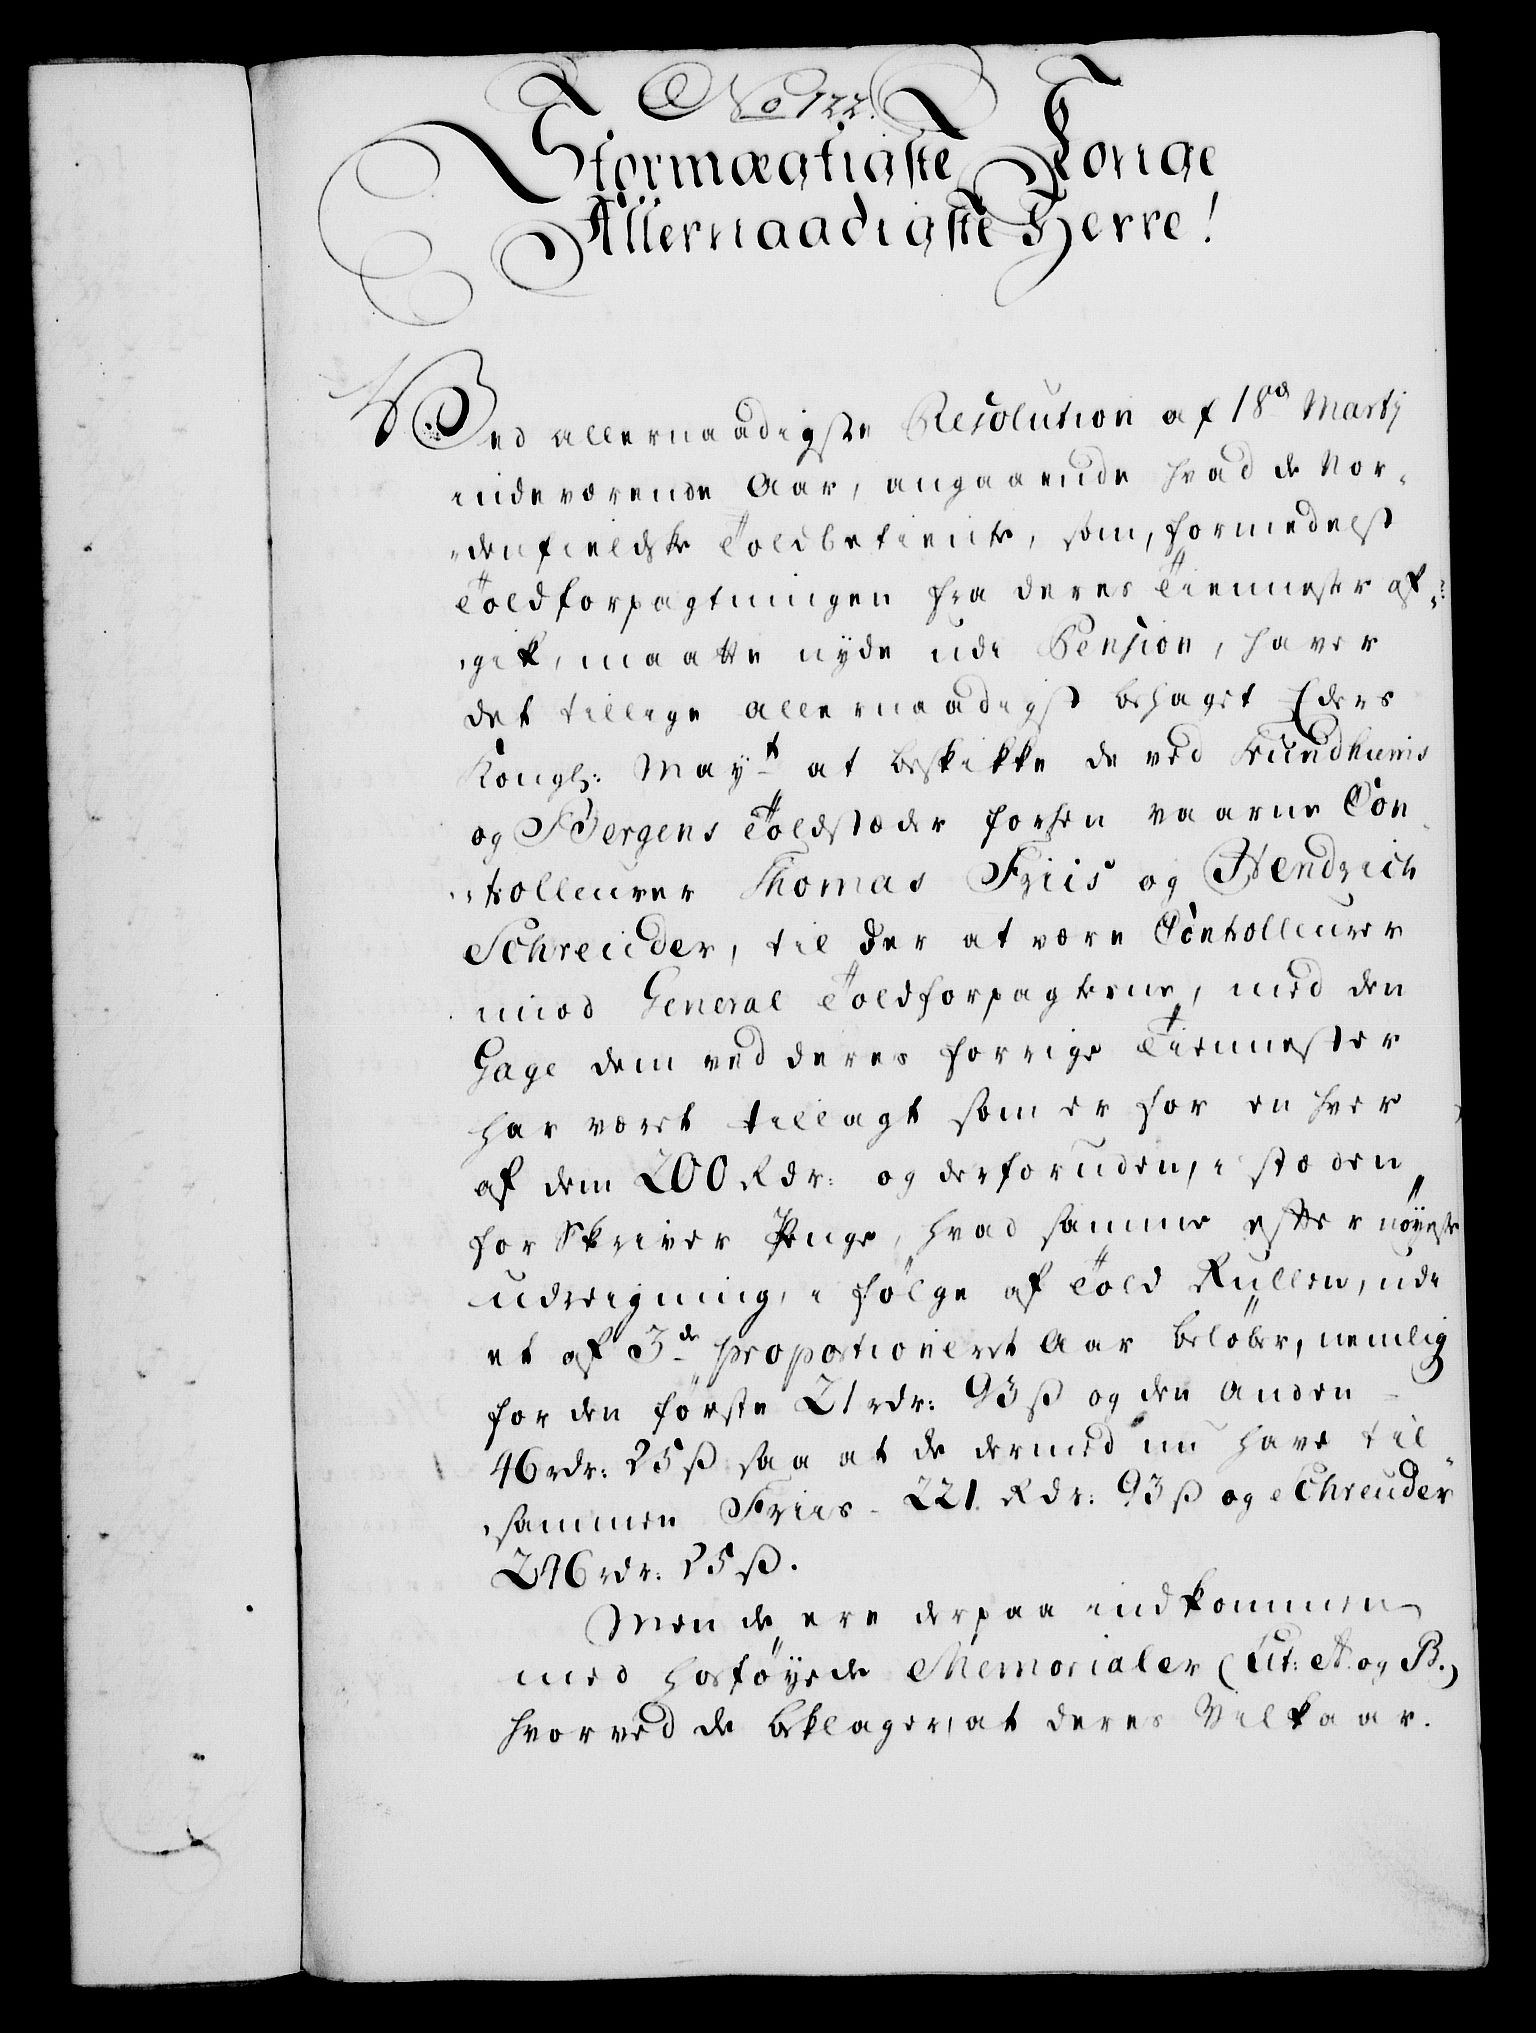 No 122.
Stormægtigste Konge
Allernaadigste Herre!
Ved allernaadigste Resolution af 18de Martij
indeværende Aar, angaaende hvad de Nor-
denfieldske Toldbetiente, som, formedelst
Toldforpagtningen fra deres Tiennester af-
gik, maatte nyde udi Pension, haver
det tillige allernaadigst behaget Eders
Kongl: Mayt at beskikke de ved Trundhiems
og Bergens Toldstæder forhen vaarne Con-
trolleurer Thomas Friis og Hendrich
Schreuder, til der at være Controlleurer
imod General Toldforpagterne, med den
Gage dem ved deres forrige Tiennester
har været tillagt som er for en hver
af dem 200 Rdr: og desforuden, i stæden
for Skriver Penge, hvad samme efter nøyeste
udreigning, i følge af Told Rullen, udi
et af 3de proportioneret Aar beløber, nemlig
for den første 21 rdr: 93 ß og den anden
46 rdr: 25 ß saa at de dermed nu have til-
sammen Friis 221 Rdr: 93 ß og Schreuder
246 rdr: 25 ß.
Men de ere derpaa indkommen
med hosføyede Memorialer (Lit: A. og B.)
hvorved de beklager, at deres Vilkaar.